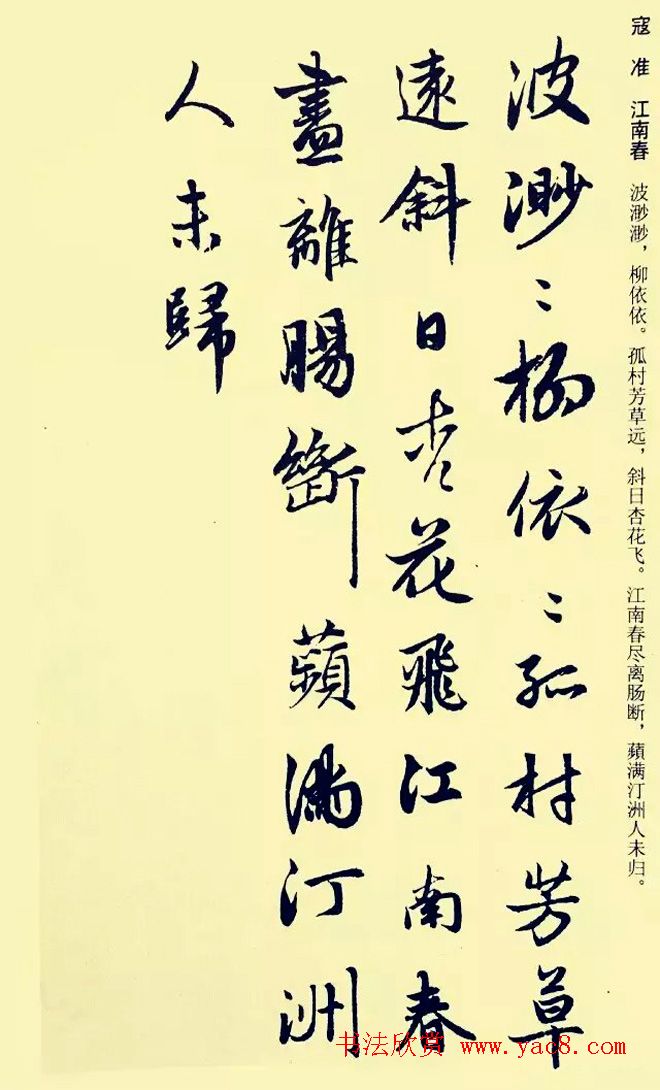 寇准 江南春 波渺渺，柳依依。孤村芳草远，斜日杏花飞。江南春尽离肠断，蘋满汀洲人未归。
波渺〻楊依〻孤村芳草
遠斜日杏花飛江南春
盡離腸斷蘋滿汀洲
人未歸
书法欣赏 www.yac8.com